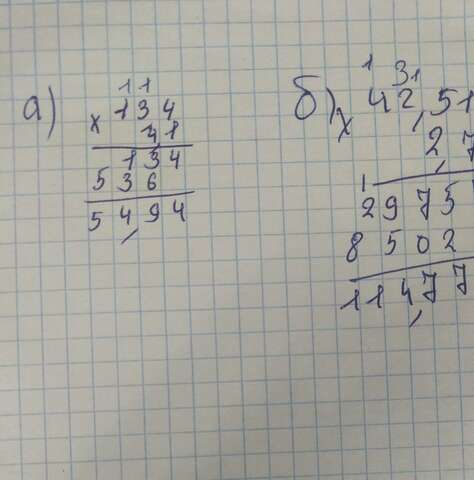 а)
1 1
134
× 4,1
134
536
54,94
б)
1 3 1
× 42,51
2,7
1
2975
8502
114,77